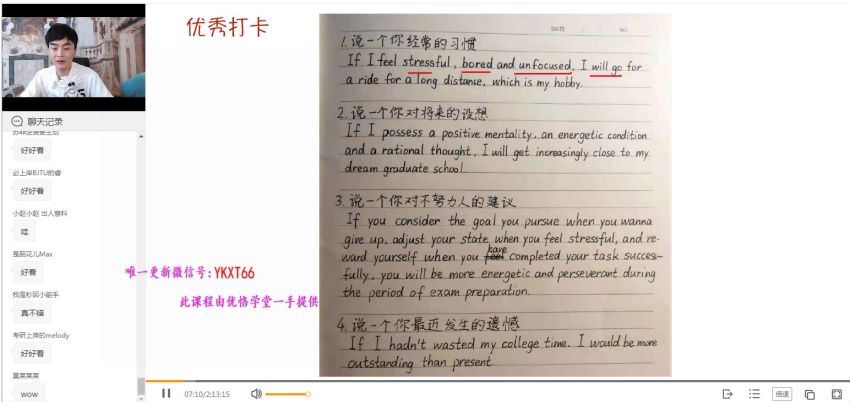 优秀打卡
DATE / / NO
1.说一个你经常的习惯
If I feel stressful, bored and unfocused, I will go for
a ride for a long distance, which is my hobby.
2.说一个你对将来的设想
If I possess a positive mentality, an energetic condition
and a rational thought, I will get increasingly close to my
dream graduate school.
3.说一个你对不努力人的建议
If you consider the goal you pursue when you wanna
give up, adjust your state when you feel stressful, and re-
ward yourself when you have completed your task success-
fully, you will be more energetic and perseverant during
the period of exam preparation.
4.说一个你最近发生的遗憾
If I hadn't wasted my college time. I would be more
outstanding than present.
聊天记录
好好看
必上岸BJTU的睿
好好看
小赵小赵 出人意料
哇
是茄花儿Max
好看
我是秒回小能手
真不错
考研上岸的melody
好好看
wow
唯一更新微信号:YKXT66
此课程由优恪学堂一手提供
07:10/2:13:15
倍速